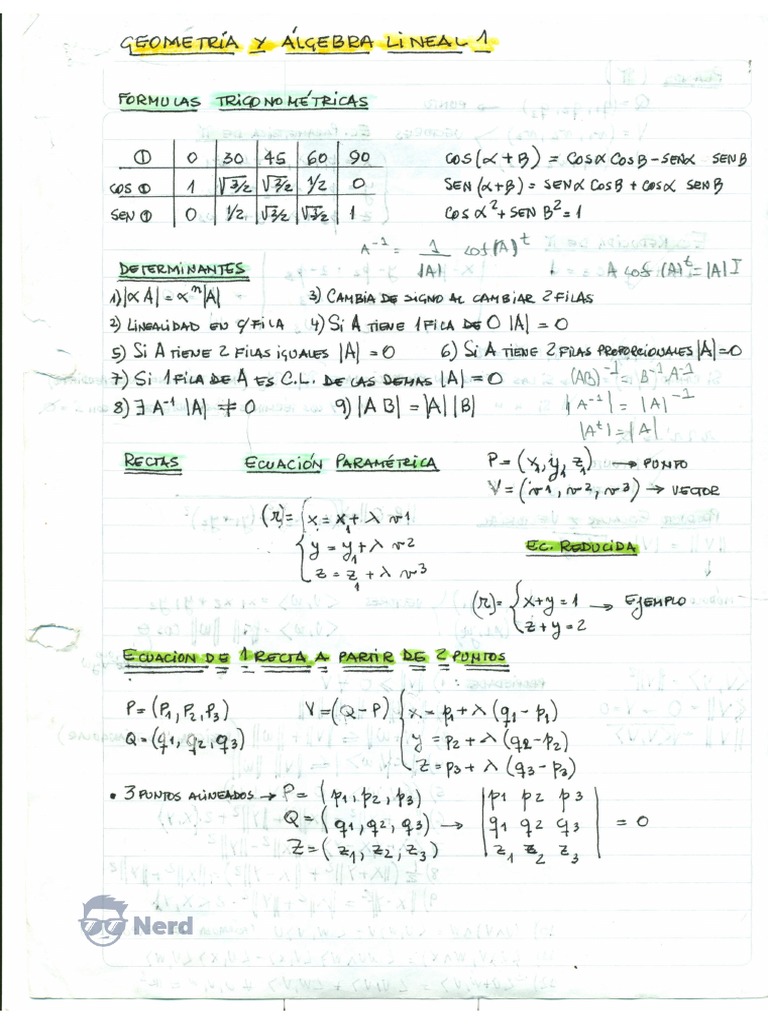 GEOMETRÍA Y ÁLGEBRA LINEAL 1
FORMULAS TRIGONOMÉTRICAS
Θ 0 30 45 60 90
COS Θ 1 √3/2 √2/2 1/2 0
SEN Θ 0 1/2 √2/2 √3/2 1
COS(α+B) = COSα COSB - SENα SENB
SEN(α+B) = SENα COSB + COSα SENB
COSα² + SENB² = 1
A⁻¹ = 1/|A| cof(A)ᵗ
A cof(A)ᵗ = |A| I
DETERMINANTES
1) |αA| = αⁿ|A| 3) CAMBIA DE SIGNO AL CAMBIAR 2 FILAS
2) LINEALIDAD EN C/FILA 4) SI A TIENE 1 FILA DE 0 |A| = 0
5) SI A TIENE 2 FILAS IGUALES |A| = 0 6) SI A TIENE 2 FILAS PROPORCIONALES |A| = 0
7) SI 1 FILA DE A ES C.L. DE LAS DEMAS |A| = 0 (AB)⁻¹ = B⁻¹A⁻¹
8) ∃ A⁻¹ |A| ≠ 0 9) |AB| = |A||B| |A⁻¹| = |A|⁻¹
|Aᵗ| = |A|
RECTAS ECUACIÓN PARAMÉTRICA
P = (x₁, y₁, z₁) → PUNTO
V = (v1, v2, v3) → VECTOR
(r) = { x = x₁ + λ v1
{ y = y₁ + λ v2
{ z = z₁ + λ v3
EC. REDUCIDA
(r) = { x+y = 1 → EJEMPLO
{ z+y = 2
ECUACION DE 1 RECTA A PARTIR DE 2 PUNTOS
P = (P₁, P₂, P₃) V = (Q - P) { x = p1 + λ (q1 - p1)
Q = (q1, q2, q3) { y = p2 + λ (q2 - p2)
{ z = p3 + λ (q3 - p3)
• 3 PUNTOS ALINEADOS → P = (p1, p2, p3) | p1 p2 p3 |
Q = (q1, q2, q3) → | q1 q2 q3 | = 0
Z = (z1, z2, z3) | z1 z2 z3 |
Nerd